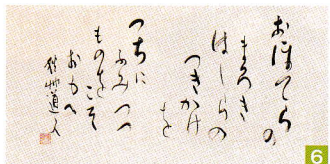 おほてらの
まろき
はしらの
つきかけ
を
つちに
ふみつつ
ものをこそ
おもへ
秋艸道人
6